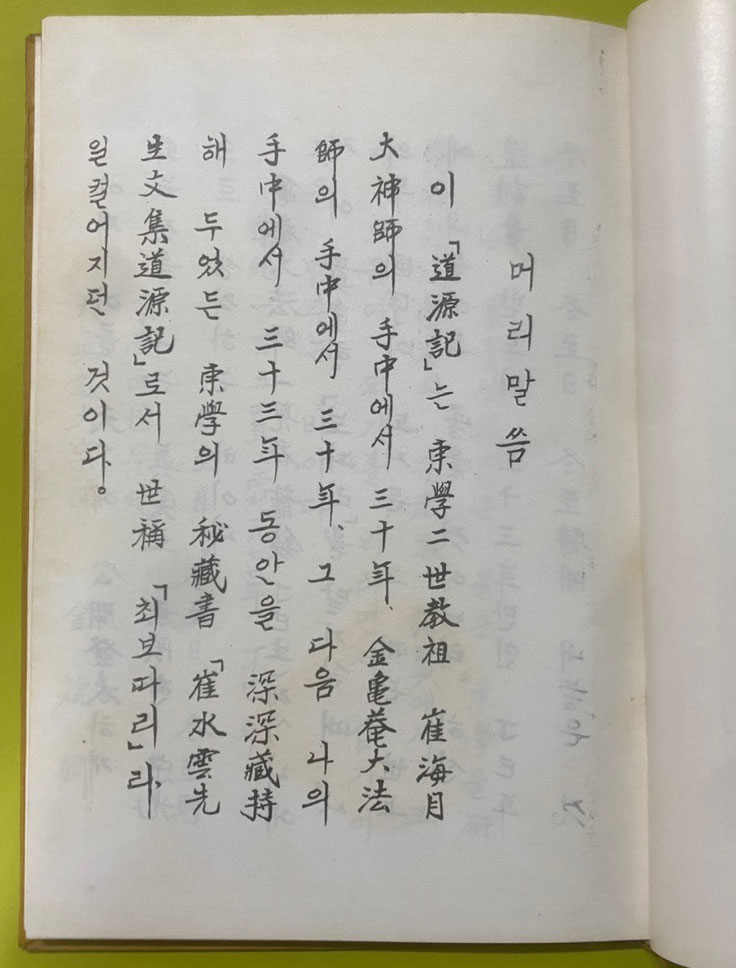 머리말씀
이「道源記」는 東學二世敎祖 崔海月
大神師의 手中에서 三十年、金龜菴大法
師의 手中에서 三十年、그 다음 나의
手中에서 三十三年 동안을 深深藏持
해 두었든 東學의 秘藏書「崔水雲先
生文集道源記」로서 世稱「최보따리」라、
일컬어지던 것이다。